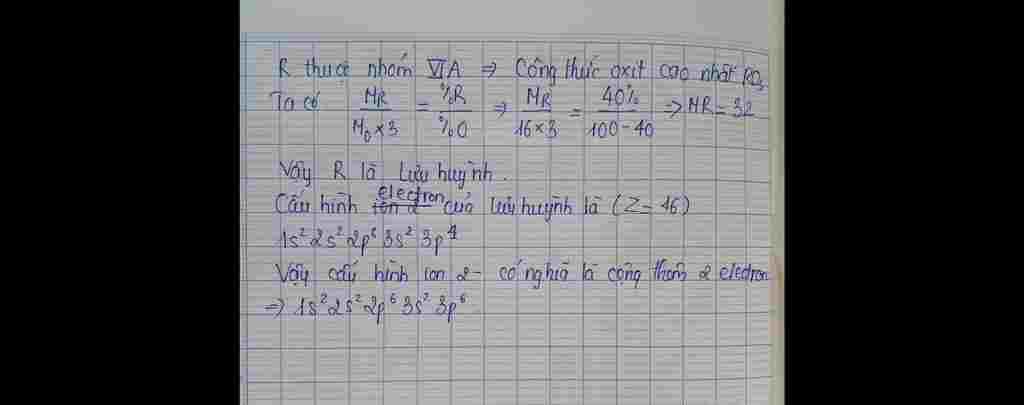 R thuộc nhóm VIA => Công thức oxit cao nhất RO3
Ta có MR/MO×3 = %R/%O => MR/16×3 = 40%/100-40 => MR = 32
Vậy R là Lưu huỳnh.
Cấu hình electron của lưu huỳnh là (Z=16)
1s² 2s² 2p⁶ 3s² 3p⁴
Vậy cấu hình ion 2- có nghĩa là cộng thêm 2 electron
=> 1s² 2s² 2p⁶ 3s² 3p⁶